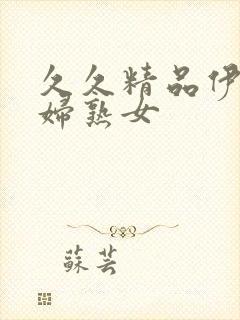 久久精品伊
婦熟女
蘇芸